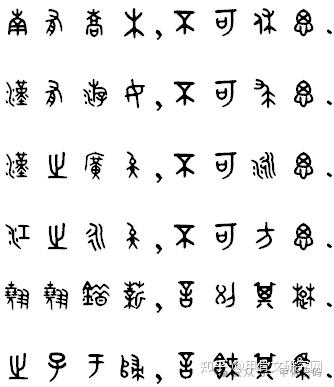 南有喬木,不可休思.
漢有游女,不可求思.
漢之廣矣,不可泳思.
江之永矣,不可方思.
翹翹錯薪,言刈其楚.
之子于歸,言秣其馬.
知乎